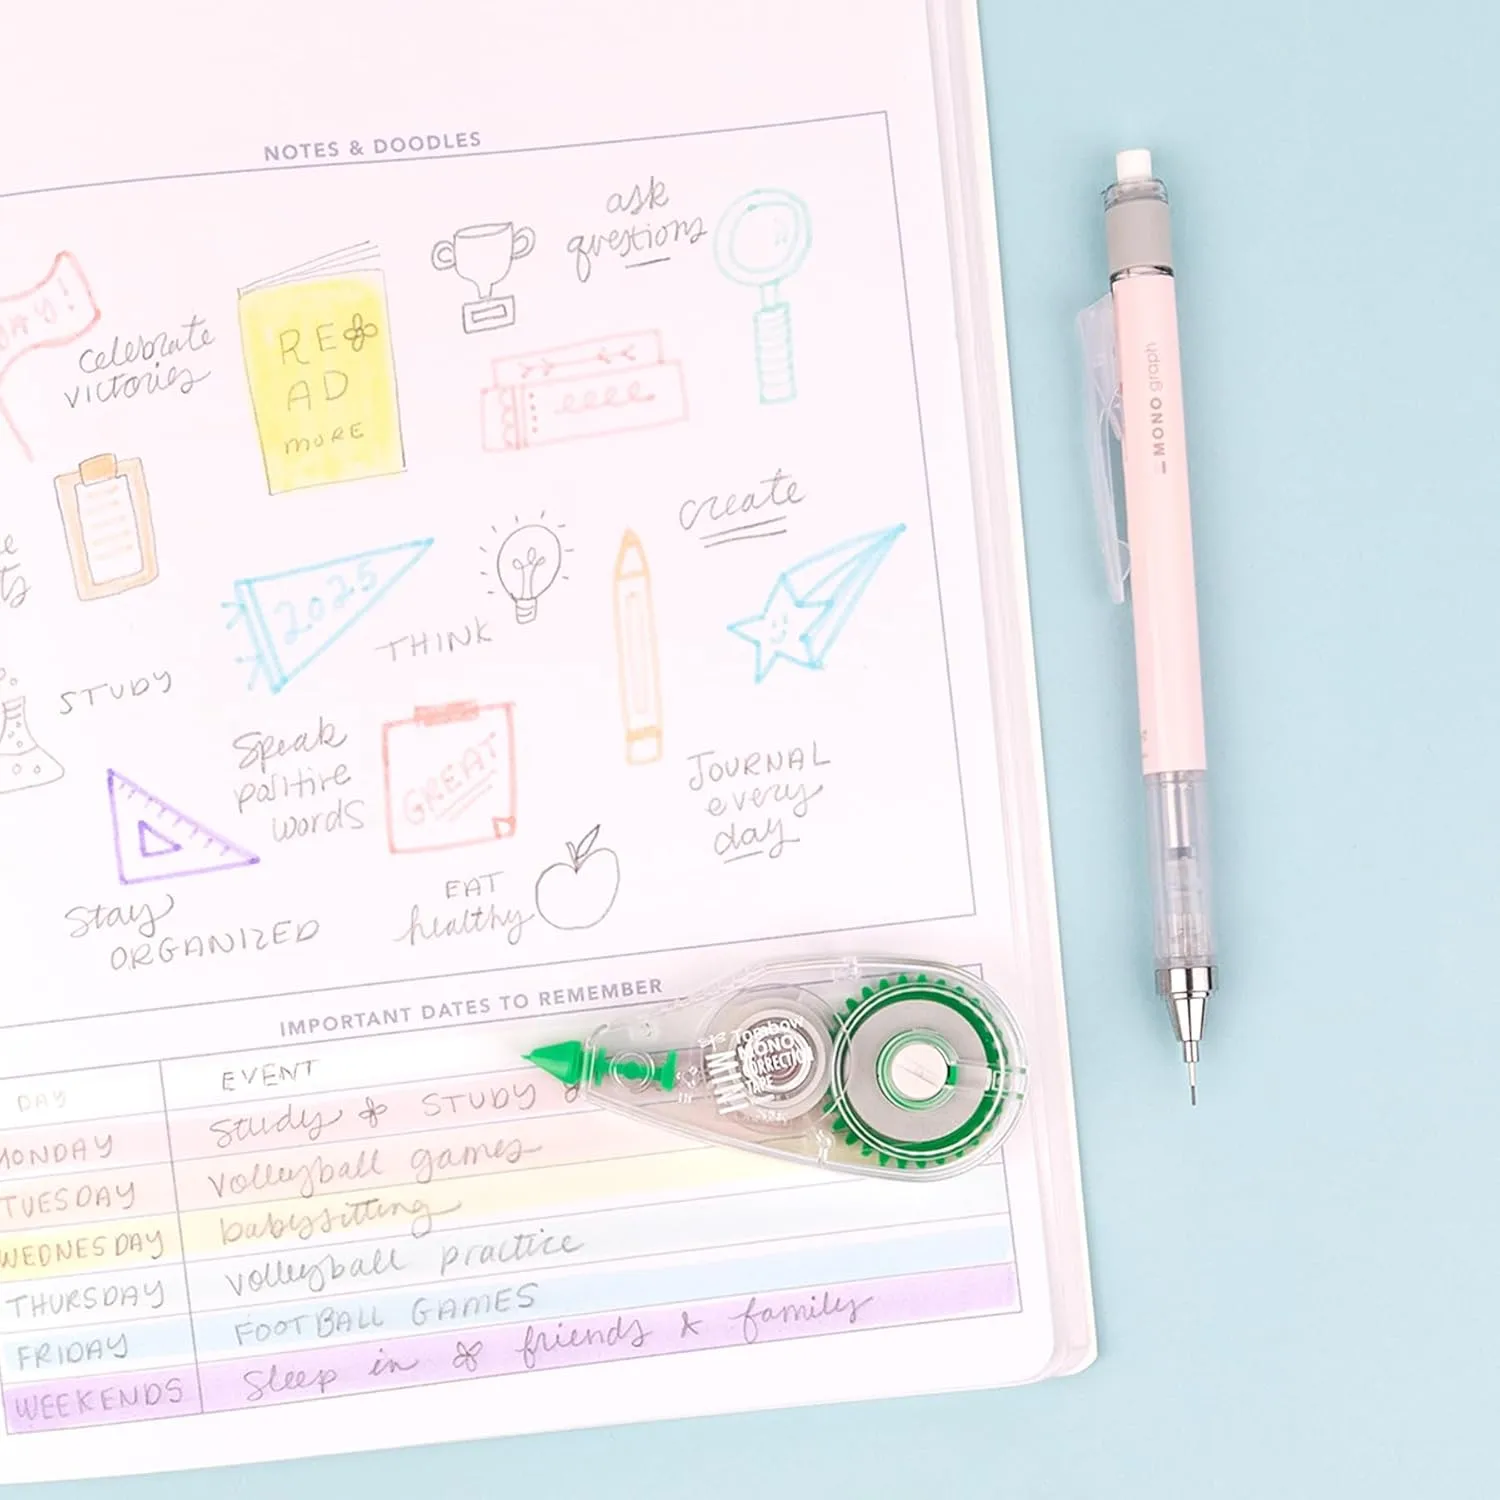 NOTES & DOODLES
ask
questions
celebrate
victories
RE
AD
MORE
create
2025
THINK
STUDY
Speak
positive
words
GREAT
JOURNAL
every
day
Stay
ORGANIZED
EAT
healthy
IMPORTANT DATES TO REMEMBER
DAY EVENT
MONDAY Study STUDY
TUESDAY volleyball games
WEDNESDAY babysitting
THURSDAY volleyball practice
FRIDAY FOOTBALL GAMES
WEEKENDS Sleep in friends & family
Tombow
MONO
CORRECTION
TAPE
MINI
MONO graph